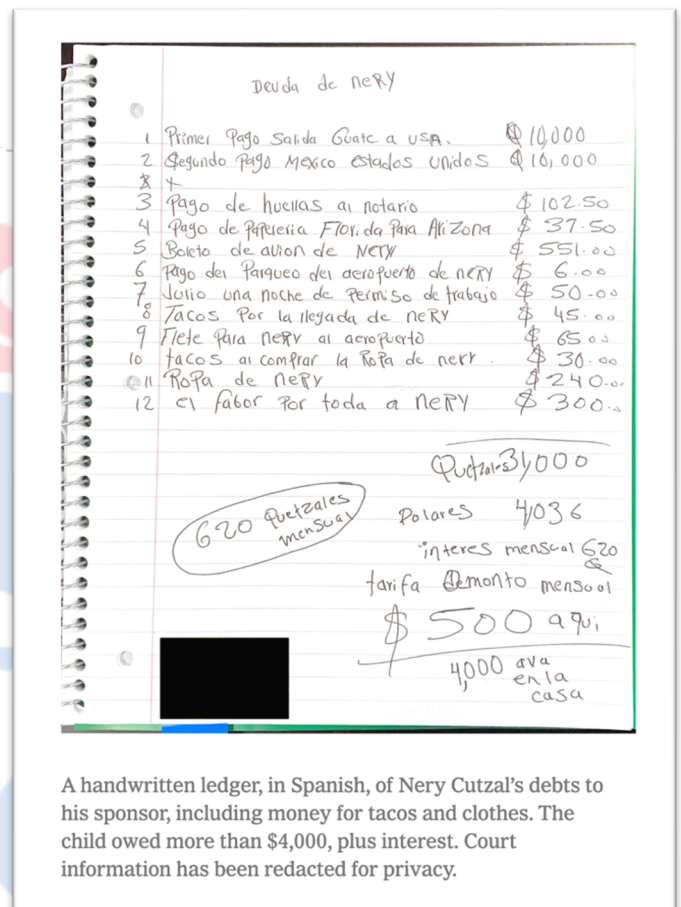 Deuda de neRy
1 Primer Pago Salida Guate a USA. Q 10,000
2 Segundo Pago Mexico estados unidos Q 10,000
3 Pago de huellas al notario $ 102.50
4 Pago de Papeleria Florida Para Arizona $ 37.50
5 Boleto de avion de Nery $ 551.00
6 Pago del Parqueo del aeropuerto de nery $ 6.00
7 Julio una noche de Permiso de trabajo $ 50.00
8 Tacos Por la llegada de neRy $ 45.00
9 Flete Para nery al aeropuerto $ 65 00
10 tacos al comprar la RoPa de nery. $ 30.00
11 RoPa de neRy $ 240.00
12 el fabor Por toda a neRy $ 300.00
Quetzales 31,000
620 Quetzales
mensual
Dolares 4036
interes mensual 620
Q
tarifa monto mensual
$ 500 aqui
4,000 ava
en la
casa
A handwritten ledger, in Spanish, of Nery Cutzal’s debts to
his sponsor, including money for tacos and clothes. The
child owed more than $4,000, plus interest. Court
information has been redacted for privacy.